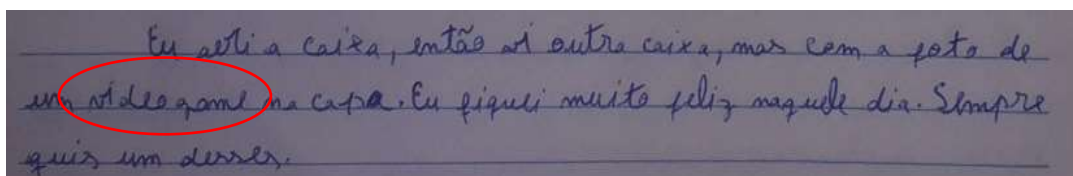 Eu abri a caixa, então vi outra caixa, mas com a foto de
um video game na capa. Eu fiquei muito feliz naquele dia. Sempre
quis um desses.